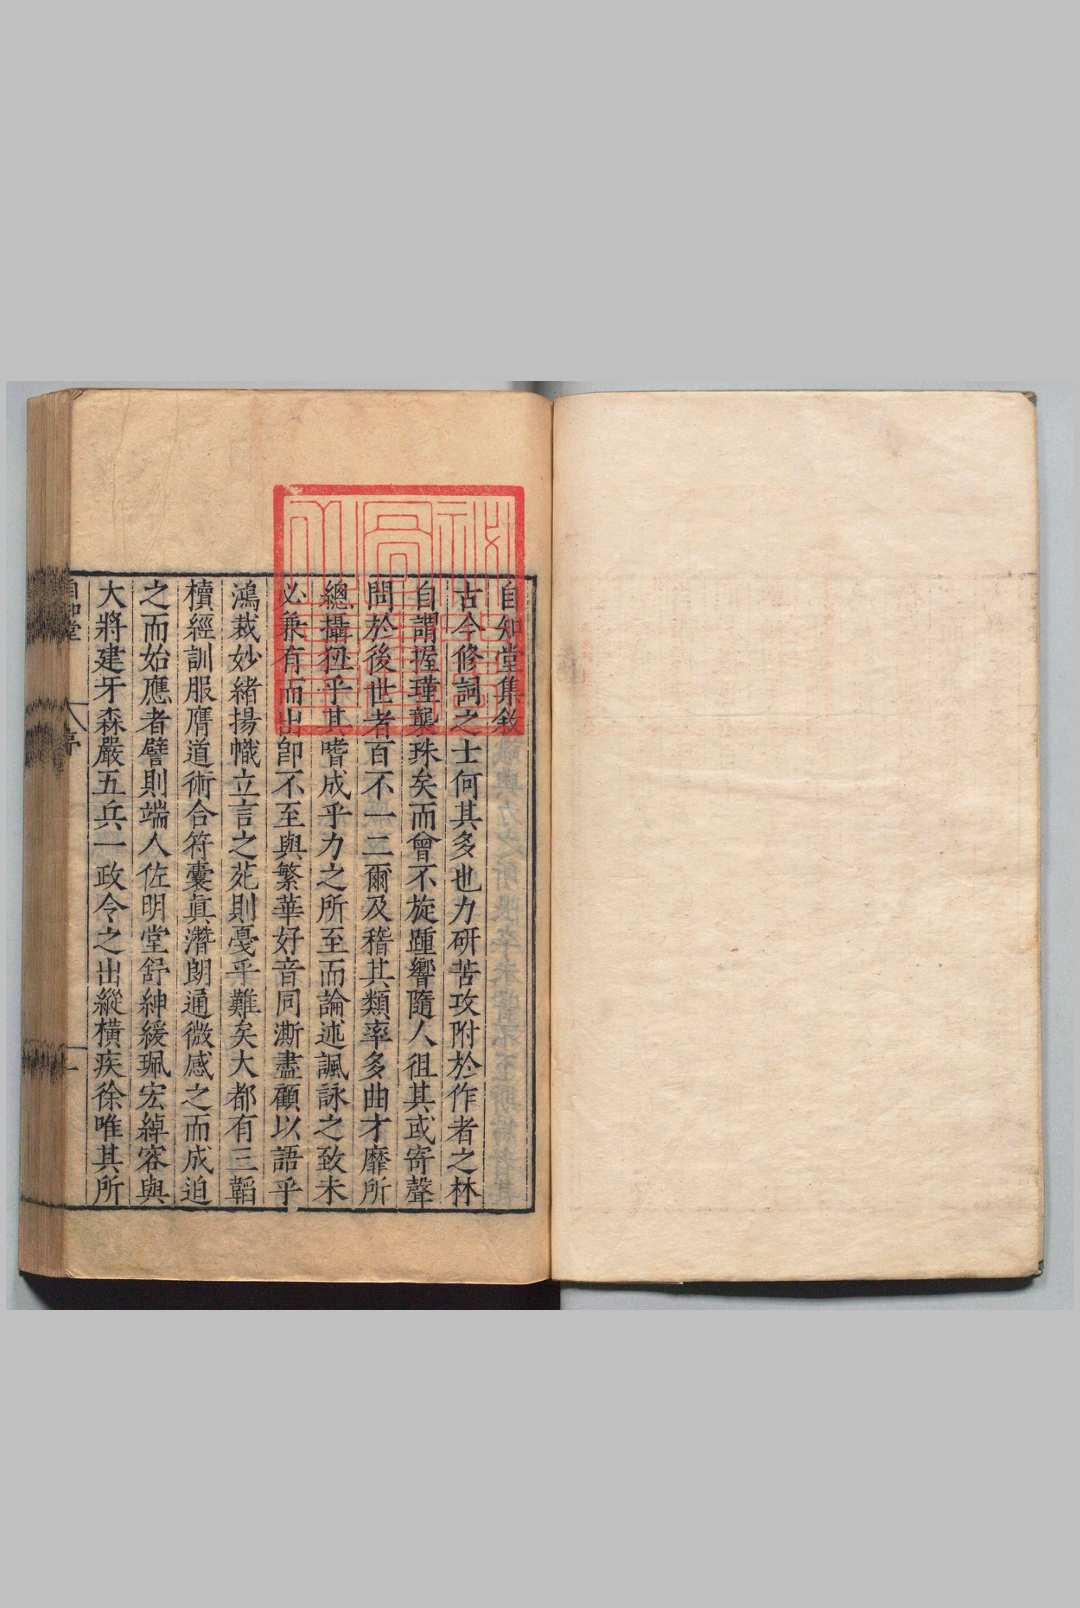 自知堂集敘
古今修詞之士何其多也力研苦攻附於作者之林
自謂握瑾襲珠矣而曾不旋踵響隨人徂其或寄聲
問於後世者百不一二爾及稽其類率多曲才靡所
總攝狃乎其嗜成乎力之所至而論述諷詠之致未
必兼有而出卽不至與繁華好音同澌盡顧以語乎
鴻裁妙緒揚幟立言之苑則戞乎難矣大都有三韜
櫝經訓服膺道術合符囊眞濳朗通微感之而成迫
之而始應者譬則端人佐明堂舒紳緩珮宏綽容與
大將建牙森嚴五兵一政令之出縱橫疾徐唯其所
自知堂
序
一